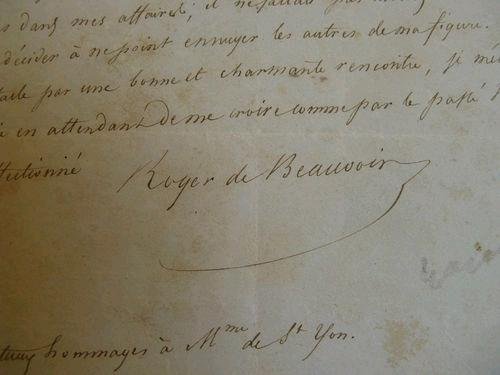 dans mes affaires, il ne fallait pas
décider à ne point ennuyer les autres de ma figure.
par une bonne et charmante rencontre, je
en attendant de me croire comme par le passé
Roger de Beauvoir
hommages à Mme de St Yon.